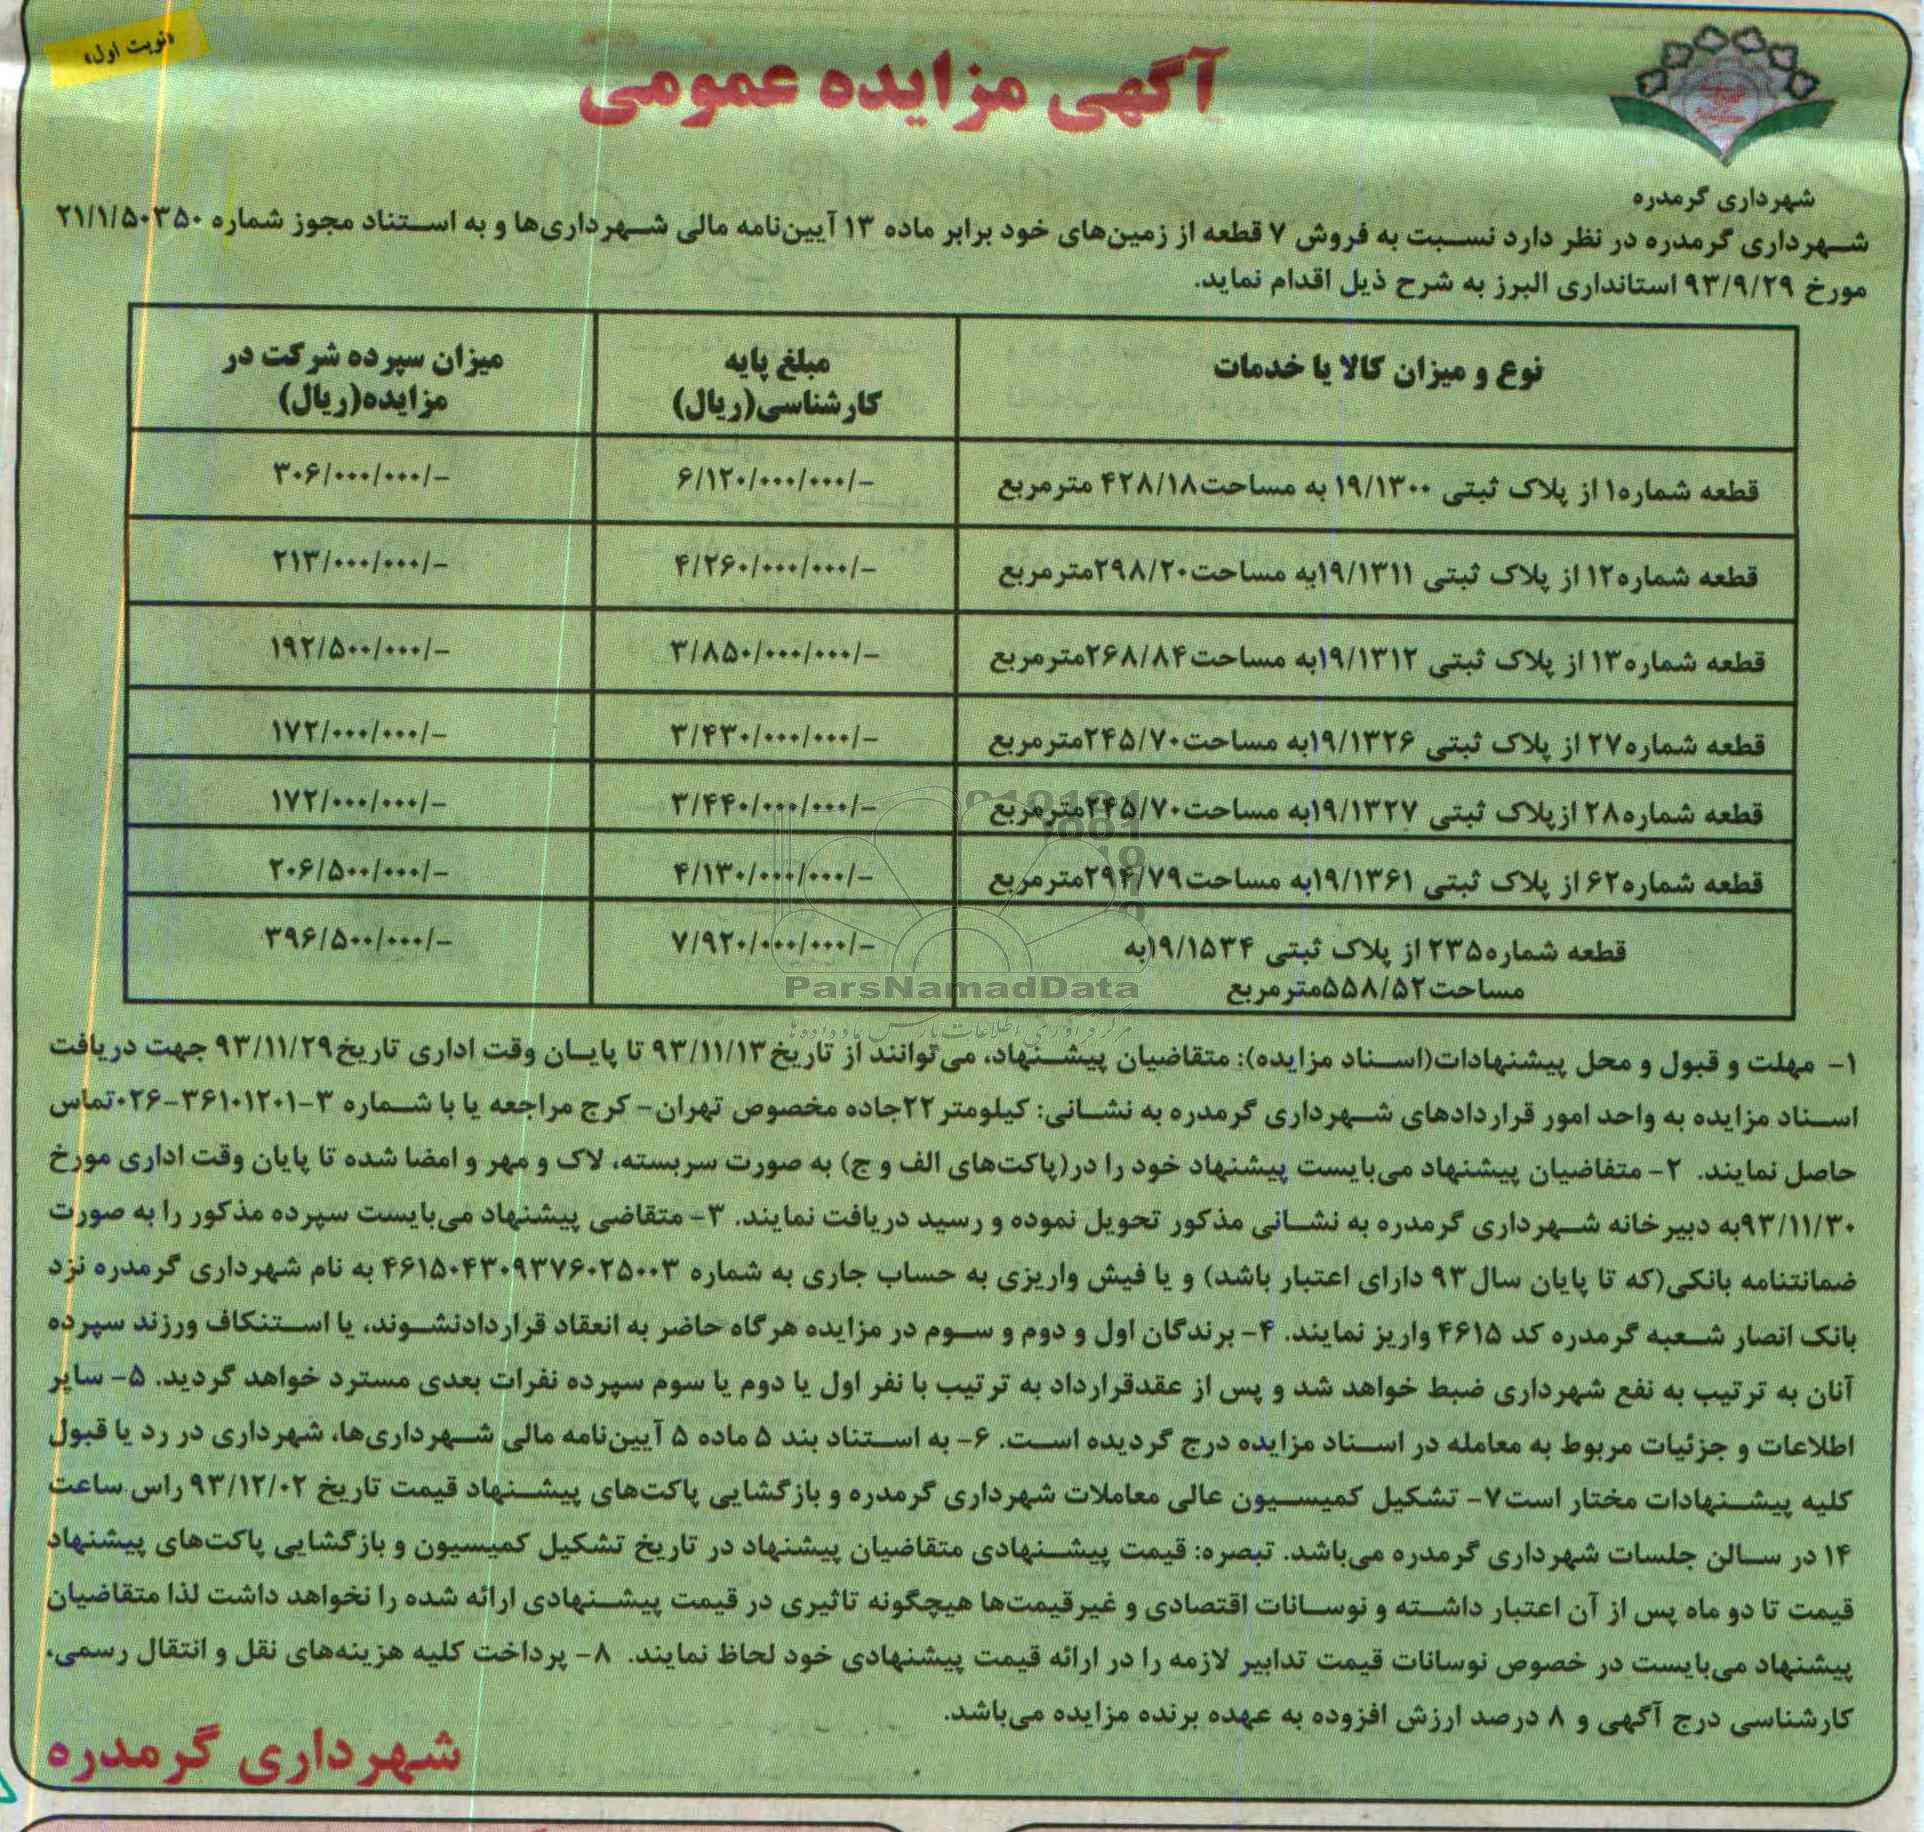 «نوبت اول»
آگهی مزایده عمومی
شهرداری گرمدره
شهرداری گرمدره در نظر دارد نسبت به فروش ۷ قطعه از زمین‌های خود برابر ماده ۱۳ آیین‌نامه مالی شهرداری‌ها و به استناد مجوز شماره ۲۱/۱/۵۰۳۵۰
مورخ ۹۳/۹/۲۹ استانداری البرز به شرح ذیل اقدام نماید.
نوع و میزان کالا یا خدمات
مبلغ پایه
کارشناسی(ریال)
میزان سپرده شرکت در
مزایده(ریال)
قطعه شماره۱ از پلاک ثبتی ۱۹/۱۳۰۰ به مساحت۴۲۸/۱۸ مترمربع
۶/۱۲۰/۰۰۰/۰۰۰/-
۳۰۶/۰۰۰/۰۰۰/-
قطعه شماره۱۲ از پلاک ثبتی ۱۹/۱۳۱۱به مساحت۲۹۸/۲۰مترمربع
۴/۲۶۰/۰۰۰/۰۰۰/-
۲۱۳/۰۰۰/۰۰۰/-
قطعه شماره۱۳ از پلاک ثبتی ۱۹/۱۳۱۲به مساحت۲۶۸/۸۴مترمربع
۳/۸۵۰/۰۰۰/۰۰۰/-
۱۹۲/۵۰۰/۰۰۰/-
قطعه شماره۲۷ از پلاک ثبتی ۱۹/۱۳۲۶به مساحت۲۴۵/۷۰مترمربع
۳/۴۳۰/۰۰۰/۰۰۰/-
۱۷۲/۰۰۰/۰۰۰/-
قطعه شماره۲۸ ازپلاک ثبتی ۱۹/۱۳۲۷به مساحت۲۴۵/۷۰مترمربع
۳/۴۴۰/۰۰۰/۰۰۰/-
۱۷۲/۰۰۰/۰۰۰/-
قطعه شماره۶۲ از پلاک ثبتی ۱۹/۱۳۶۱به مساحت۲۹۴/۷۹مترمربع
۴/۱۳۰/۰۰۰/۰۰۰/-
۲۰۶/۵۰۰/۰۰۰/-
قطعه شماره۲۳۵ از پلاک ثبتی ۱۹/۱۵۳۴به
مساحت۵۵۸/۵۲مترمربع
۷/۹۲۰/۰۰۰/۰۰۰/-
۳۹۶/۵۰۰/۰۰۰/-
ParsNamadData
۱- مهلت و قبول و محل پیشنهادات(اسناد مزایده): متقاضیان پیشنهاد، می‌توانند از تاریخ۹۳/۱۱/۱۳ تا پایان وقت اداری تاریخ۹۳/۱۱/۲۹ جهت دریافت
اسناد مزایده به واحد امور قراردادهای شهرداری گرمدره به نشانی: کیلومتر۲۲جاده مخصوص تهران- کرج مراجعه یا با شماره ۳-۳۶۱۰۱۲۰۱-۰۲۶تماس
حاصل نمایند. ۲- متقاضیان پیشنهاد می‌بایست پیشنهاد خود را در(پاکت‌های الف و ج) به صورت سربسته، لاک و مهر و امضا شده تا پایان وقت اداری مورخ
۹۳/۱۱/۳۰به دبیرخانه شهرداری گرمدره به نشانی مذکور تحویل نموده و رسید دریافت نمایند. ۳- متقاضی پیشنهاد می‌بایست سپرده مذکور را به صورت
ضمانتنامه بانکی(که تا پایان سال۹۳ دارای اعتبار باشد) و یا فیش واریزی به حساب جاری به شماره ۴۶۱۵۰۴۳۰۹۳۷۶۰۲۵۰۰۳ به نام شهرداری گرمدره نزد
بانک انصار شعبه گرمدره کد ۴۶۱۵ واریز نمایند. ۴- برندگان اول و دوم و سوم در مزایده هرگاه حاضر به انعقاد قراردادنشوند، یا استنکاف ورزند سپرده
آنان به ترتیب به نفع شهرداری ضبط خواهد شد و پس از عقدقرارداد به ترتیب با نفر اول یا دوم یا سوم سپرده نفرات بعدی مسترد خواهد گردید. ۵- سایر
اطلاعات و جزئیات مربوط به معامله در اسناد مزایده درج گردیده است. ۶- به استناد بند ۵ ماده ۵ آیین‌نامه مالی شهرداری‌ها، شهرداری در رد یا قبول
کلیه پیشنهادات مختار است۷- تشکیل کمیسیون عالی معاملات شهرداری گرمدره و بازگشایی پاکت‌های پیشنهاد قیمت تاریخ ۹۳/۱۲/۰۲ راس ساعت
۱۴ در سالن جلسات شهرداری گرمدره می‌باشد. تبصره: قیمت پیشنهادی متقاضیان پیشنهاد در تاریخ تشکیل کمیسیون و بازگشایی پاکت‌های پیشنهاد
قیمت تا دو ماه پس از آن اعتبار داشته و نوسانات اقتصادی و غیرقیمت‌ها هیچگونه تاثیری در قیمت پیشنهادی ارائه شده را نخواهد داشت لذا متقاضیان
پیشنهاد می‌بایست در خصوص نوسانات قیمت تدابیر لازمه را در ارائه قیمت پیشنهادی خود لحاظ نمایند. ۸- پرداخت کلیه هزینه‌های نقل و انتقال رسمی،
کارشناسی درج آگهی و ۸ درصد ارزش افزوده به عهده برنده مزایده می‌باشد.
شهرداری گرمدره